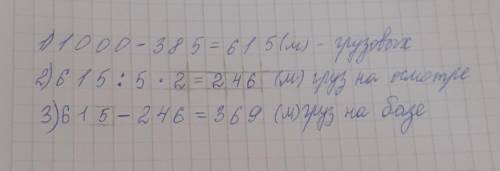 1) 1000 - 385 = 615 (м) - грузовых
2) 615 : 5 · 2 = 246 (м) груз на осмотре
3) 615 - 246 = 369. (м) груз на базе